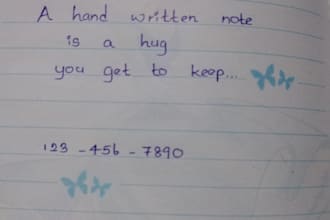 A hand written note
is a hug
you get to keep...
123 - 456 - 7890